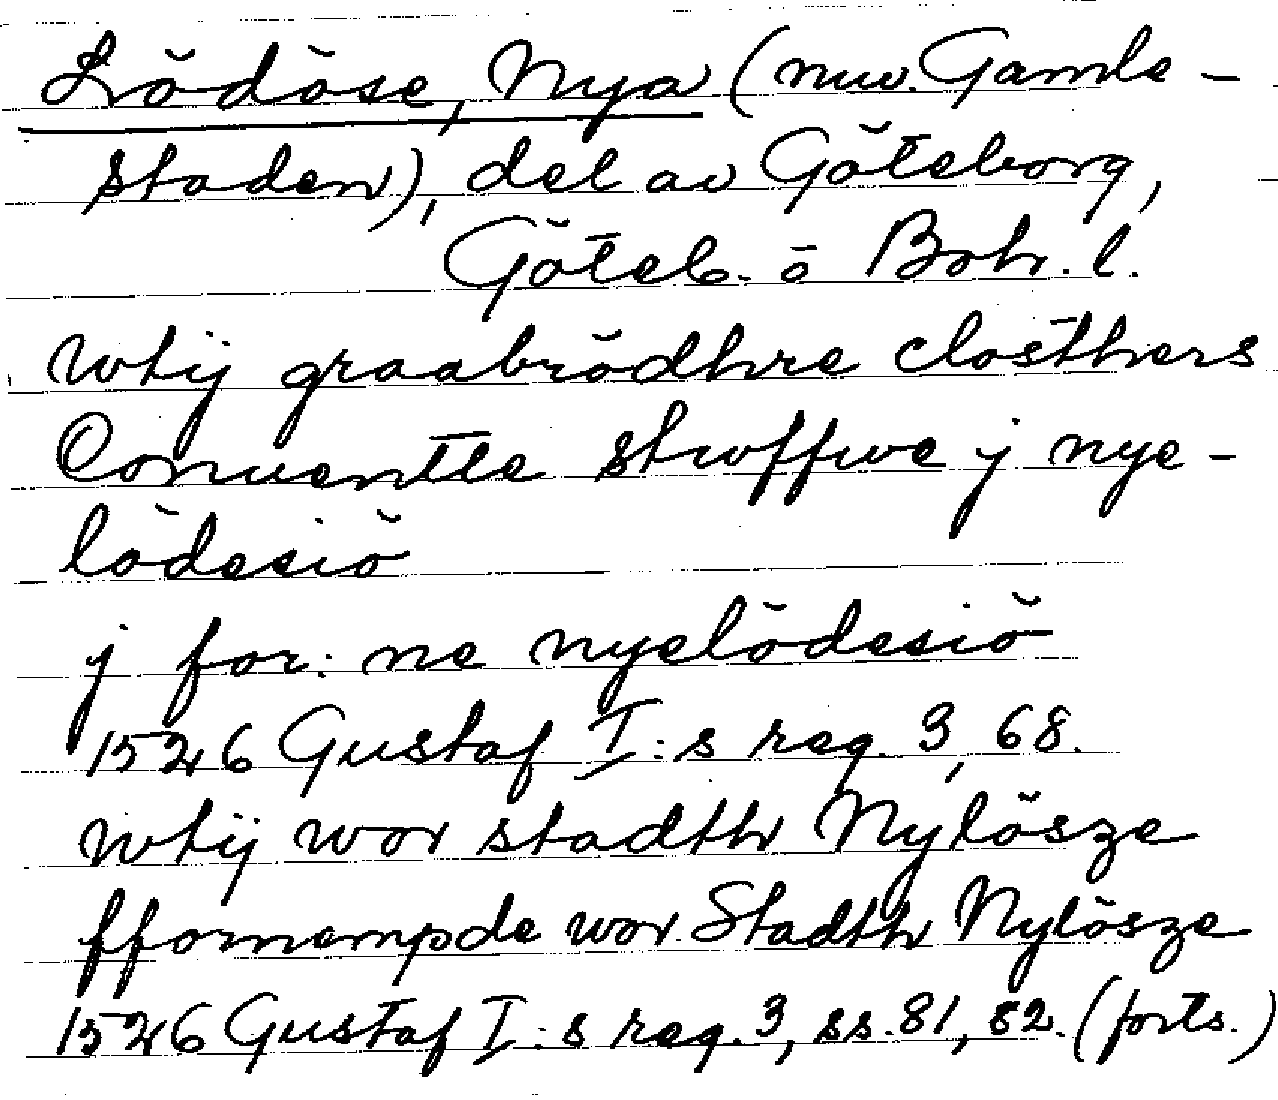 Lödöse, Nya (nuv. Gamle-
staden), del av Göteborg,
Göteb. o Boh. l.
wtij graabrödhre closthers
Conuentle stwffwe j nye-
lödesiö
j for: ne nyelödesiö
1526 Gustaf I:s reg. 3, 68.
wtij wor stadth Nylösze
ffornempde wor Stadth Nylösze
1526 Gustaf I:s reg. 3, ss. 81, 82. (forts.)